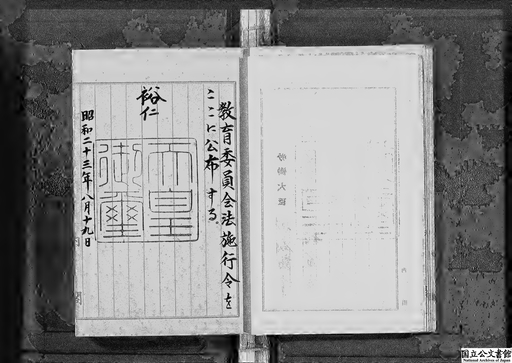 教育委員会法施行令を
ここに公布する。
裕仁
天皇
御璽
昭和二十三年八月十九日
国立公文書館
National Archives of Japan